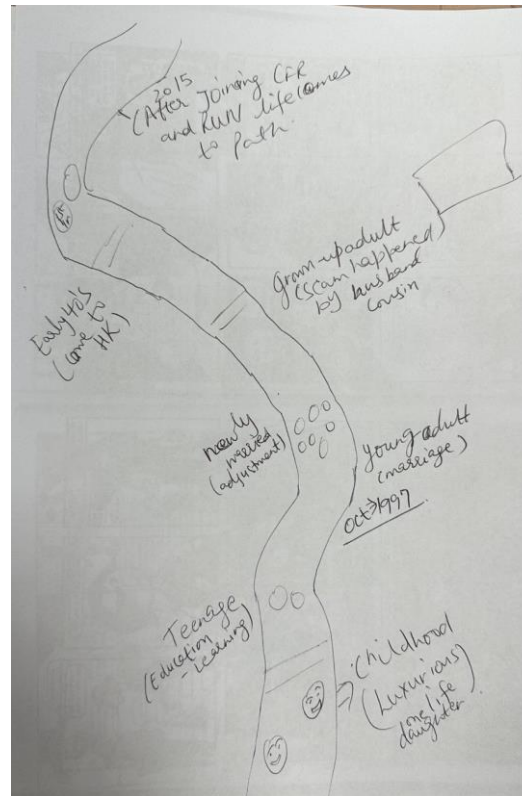 2015
(After Joining CFR
and RUN life comes
to path.
Grown-up adult
(Scam happened)
by husband
cousin
Early 40's
(come to
HK)
newly
married
(adjustment)
Young adult
(marriage)
Oct 1997
Teenage
(Education
- Learning)
Childhood
(Luxurious)
one life
daughter.